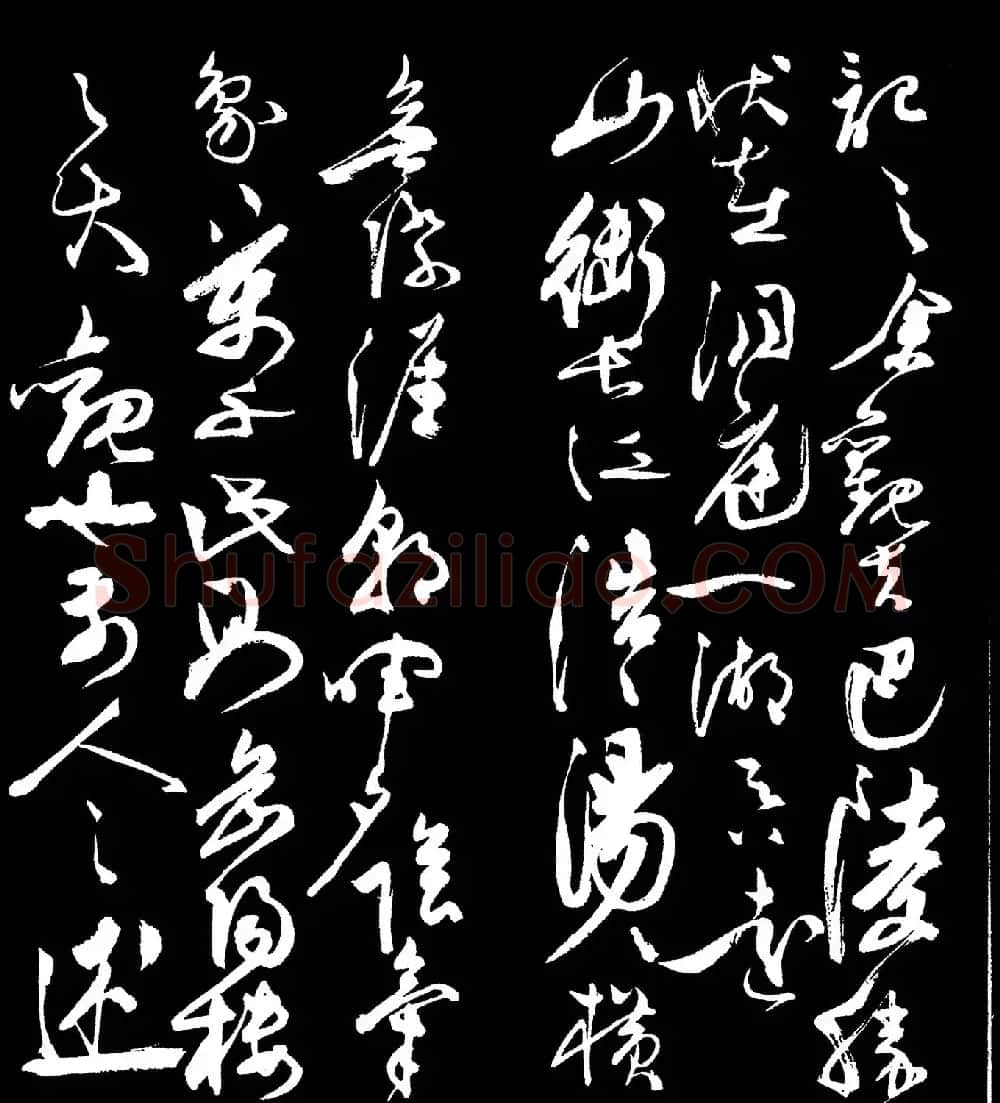 記之余觀夫巴陵勝
狀在洞庭一湖吞遠
山銜長江浩〻湯〻橫
無際涯朝暉夕陰氣
象萬千此則岳陽樓
之大觀也前人之述
Shufaziliao.COM